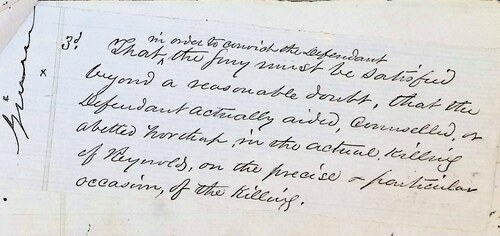 Given
3d
in order to convict the Defendant
x That ^ the jury must be satisfied
beyond a reasonable doubt, that the
Defendant actually aided, Counselled, or
abetted Northup in the actual Killing
of Reynolds, on the precise & particular
occasion, of the Killing.